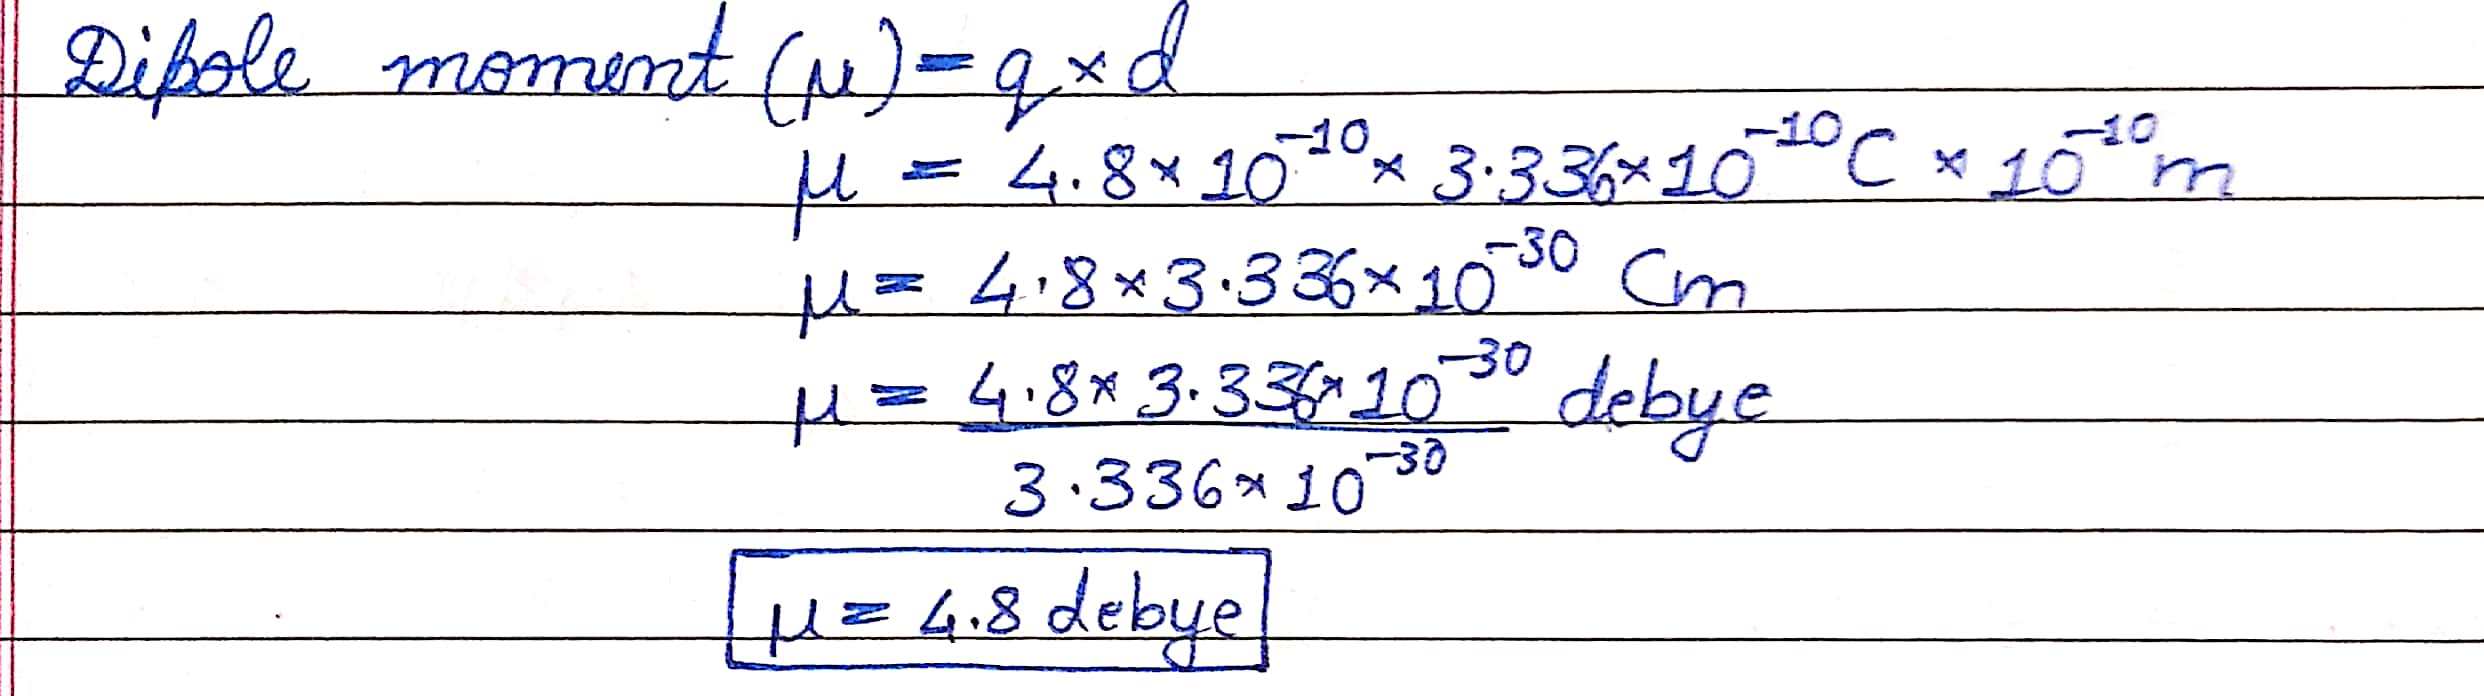 Dipole moment (μ) = q × d
μ = 4.8 × 10⁻¹⁰ × 3.336 × 10⁻¹⁰ C × 10⁻¹⁰ m
μ = 4.8 × 3.336 × 10⁻³⁰ Cm
μ = 4.8 × 3.336 × 10⁻³⁰ debye
3.336 × 10⁻³⁰
μ = 4.8 debye